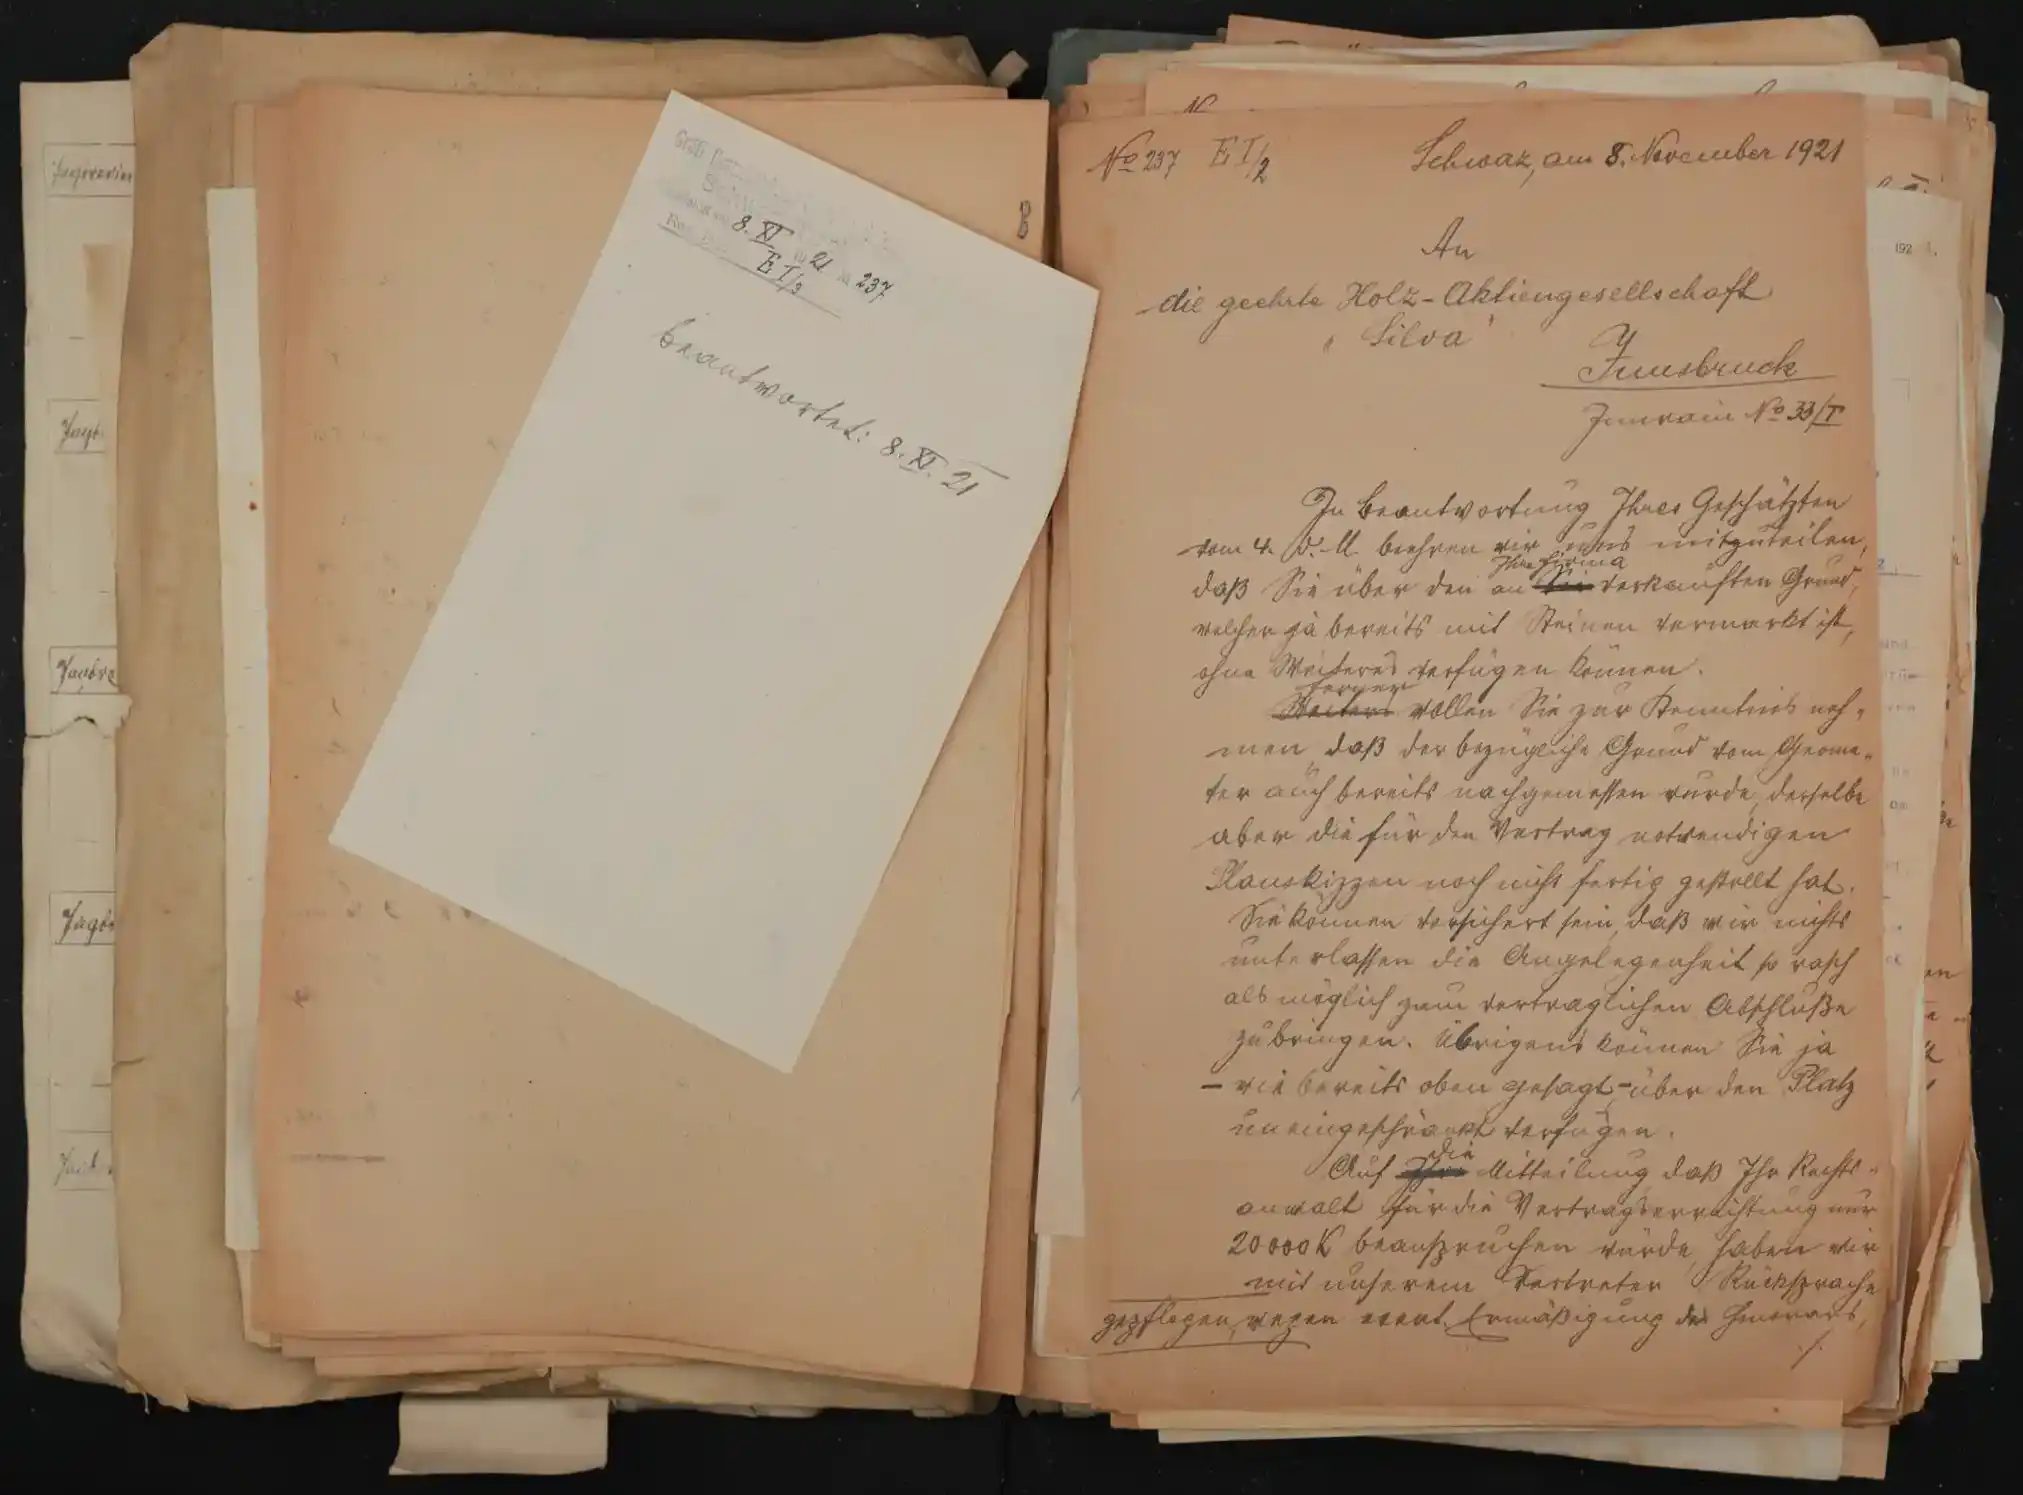 8. XI 21 237
E I/3
beantwortet: 8. XI. 21
No 237 E I/2 Schwaz, am 8. November 1921
An
die geehrte Holz-Aktiengesellschaft
"Silva"
Innsbruck
Innrain No 33/I
In Beantwortung Ihres Geschätzten
vom 4. d. M. beehren wir uns mitzuteilen,
Ihre Firma
daß Sie über den an Sie verkauften Grund,
welcher ja bereits mit Steinen vermarkt ist,
ohne Weiteres verfügen können.
ferner
Weiters wollen Sie zur Kenntnis neh-
men, daß der bezügliche Grund vom Geome-
ter auch bereits nachgemessen wurde, derselbe
aber die für den Vertrag notwendigen
Planskizzen noch nicht fertig gestellt hat.
Sie können versichert sein, daß wir nichts
unterlassen die Angelegenheit so rasch
als möglich zum vertraglichen Abschluße
zu bringen. Übrigens können Sie ja
– wie bereits oben gesagt – über den Platz
uneingeschränkt verfügen.
die
Auf Ihre Mitteilung daß Ihr Rechts-
anwalt für die Vertragserrichtung nur
20000 K beanspruchen würde, haben wir
mit unserem Vertreter Rücksprache
gepflogen, wegen event. Ermäßigung des Honorars,
./.